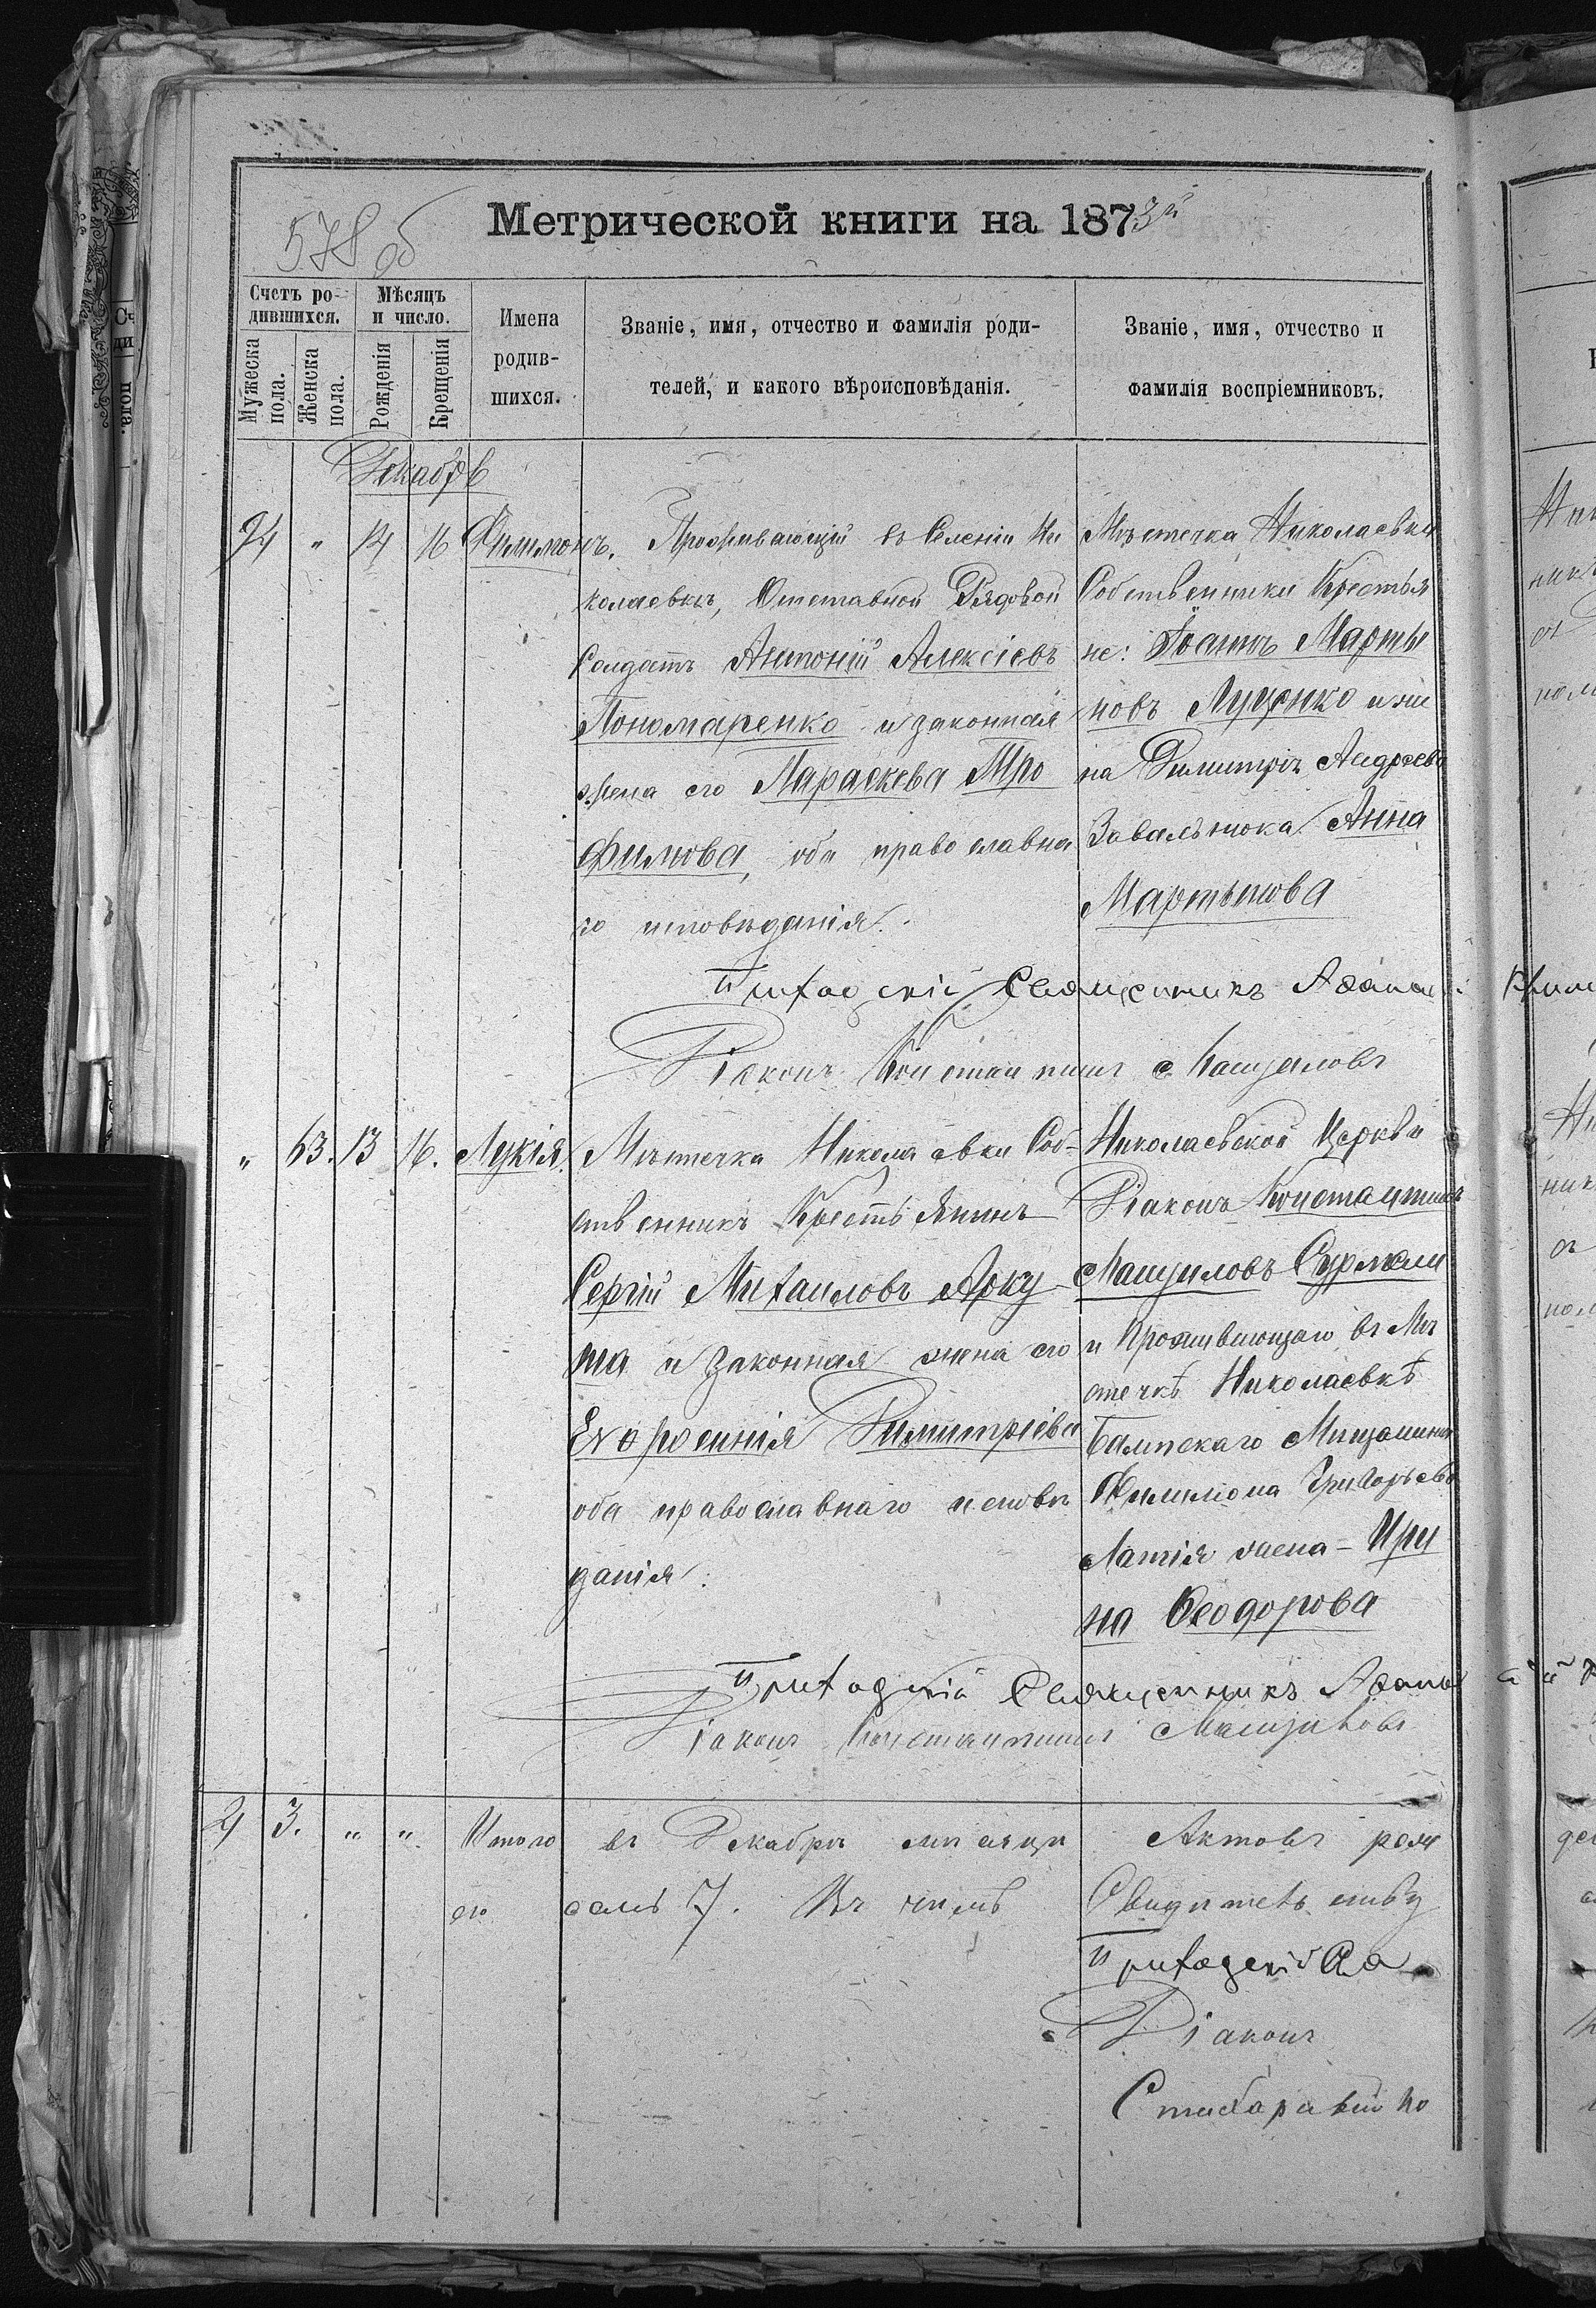 578 об
Метрической книги на 1873й
Счетъ ро-
дившихся.
Мужеска пола.
Женска пола.
Мѣсяцъ
и число.
Рожденія
Крещенія
Имена
родив-
шихся.
Званіе, имя, отчество и фамилія роди-
телей, и какого вѣроисповѣданія.
Званіе, имя, отчество и
фамилія воспріемниковъ.
Декабрь
94 " 14 16 Филимонъ.
Проживающій въ Селеніи Ни
колаевкѣ, Отставной Рядовой
Солдатъ Антоній Алексіевъ
Пономаренко и законная
жена его Параскева Тро
фимова, оба православна
го исповѣданія.
Мѣстечка Николаевки
Собственники Крестья
не: Іоаннъ Марты
новъ Луценко и же
на Димитрія Андреева
Завальнюка Анна
Мартынова
Приходскій Священникъ
Діаконъ Константинъ Мащуловъ
" 63. 13 16. Лукія.
Мѣстечка Николаевки Соб-
ственникъ Крестьянинъ
Сергій Михаиловъ Яку
ша и законная жена его
Евфросинія Димитріева
оба православнаго исповѣ
данія.
Николаевской Церкви
Діаконъ Константинъ
Мащуловъ Сурмели
и Проживющаго въ Мѣ
стечкѣ Николаевкѣ
Балтскаго Мищанина
Филимона Григорьева
Латія жена - Ири
на Ѳеодорова
Приходскій Священникъ
Діаконъ Константинъ Мащуловъ
4 3. " ". Итого въ Декабрѣ мѣсяцѣ
семь 7. Въ чемъ
Актовъ рож
Свидѣтельству
Приходскій
Діаконъ